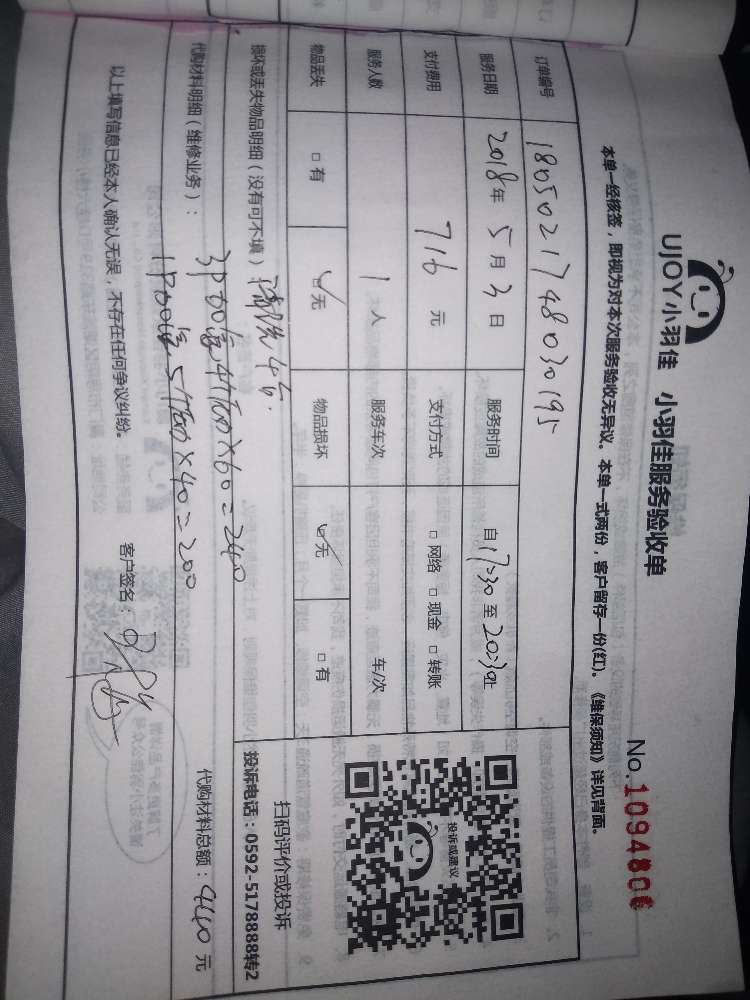 UJOY小羽佳 小羽佳服务验收单
No.1094806
本单一经核签，即视为对本次服务验收无异议。本单一式两份，客户留存一份(红)。《维保须知》详见背面。
订单编号 1805021748030195
服务日期 2018年5月3日 服务时间 自17:30至20:30止
支付费用 716元 支付方式 □网络 □现金 □转账
服务人数 1人 服务车次 车/次
物品丢失 □有 □无 物品损坏 □无 □有
投诉或建议
扫码评价或投诉
投诉电话：0592-5178888转2
损坏或丢失物品明细（没有可不填）：清洗4台.
代购材料明细（维修业务）： 代购材料总额：440元
×60=240
×40=200
以上填写信息已经本人确认无误，不存在任何争议纠纷。 客户签名：